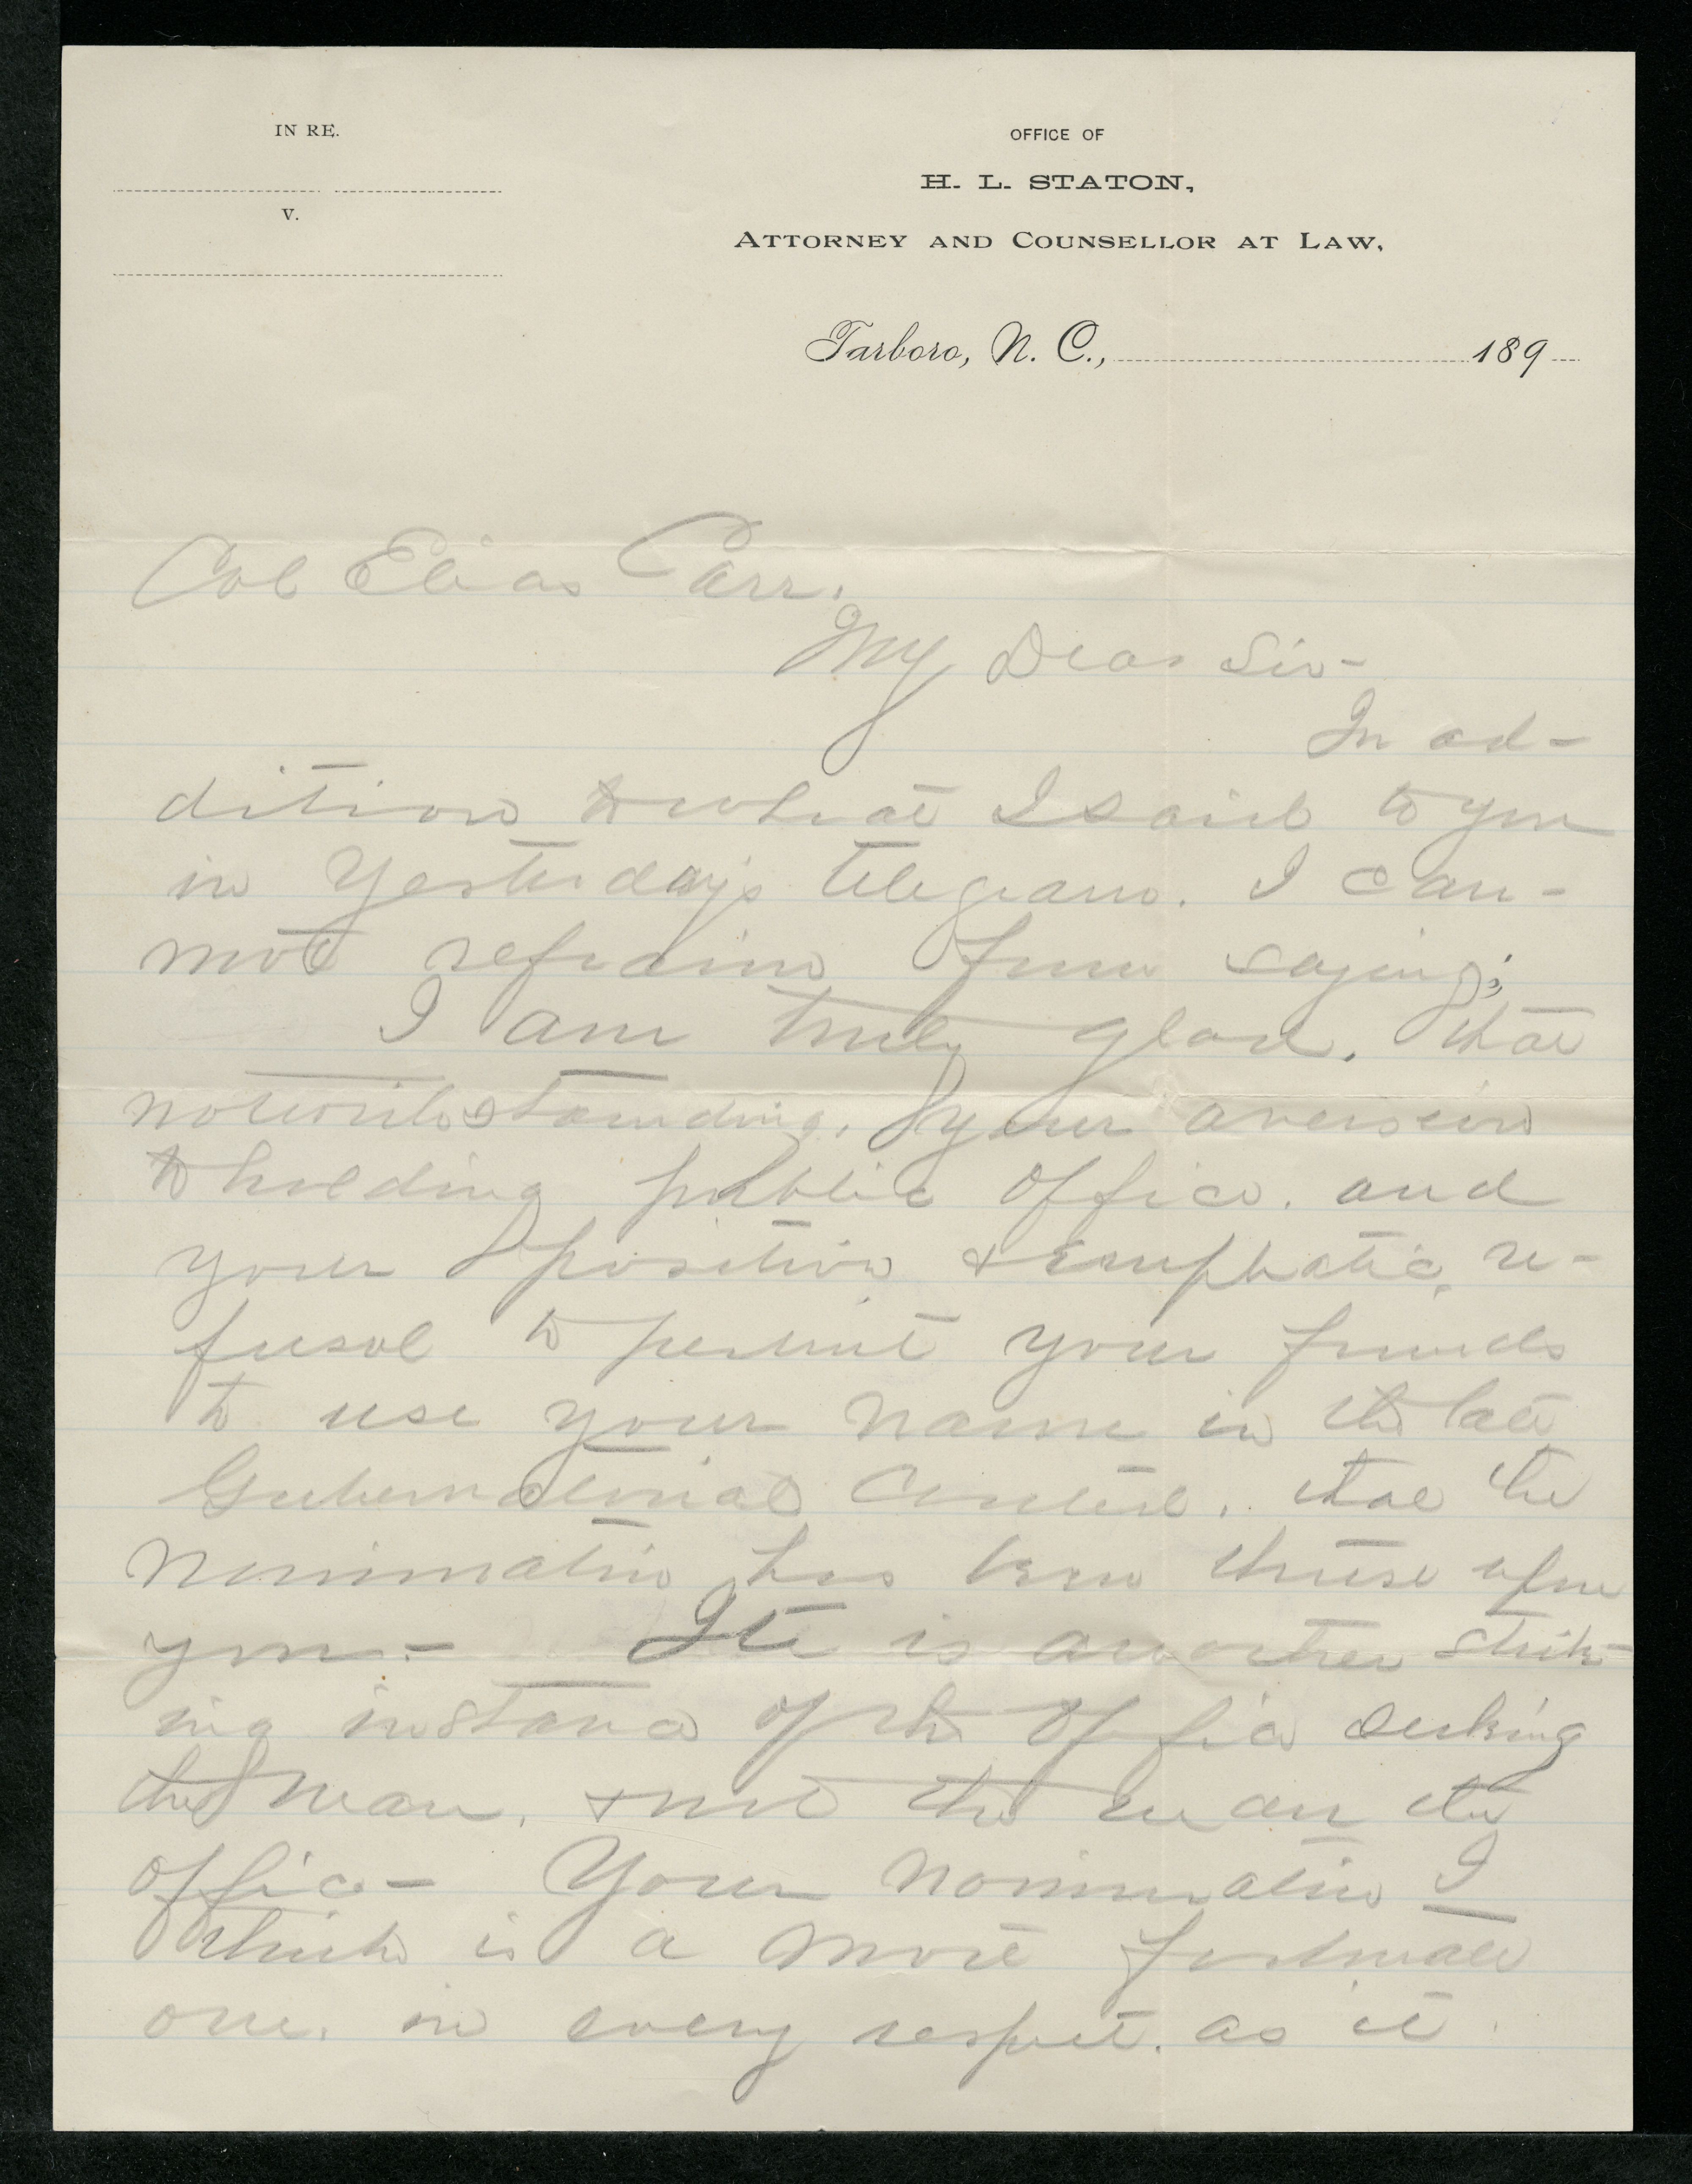 IN RE.
V.
OFFICE OF
H. L. STATON,
ATTORNEY AND COUNSELLOR AT LAW,
Tarboro, N. C., 189
Col Elias Carr.
My Dear Sir-
In ad-
dition to what I said to you
in Yesterday's telegram. I can-
not refrain from saying;
I am truly glad, that
notwithstanding, your aversion
to holding public office. and
your position & emphatic, re-
fusal to permit your friends
to use your name in the late
Gubernatorial Contest. that the
nomination has been thrust upon
you.- It is another strik-
ing instance of the office seeking
the man, & not the man the
office- Your nomination I
think is a most fortunate
one. in every respect. as it